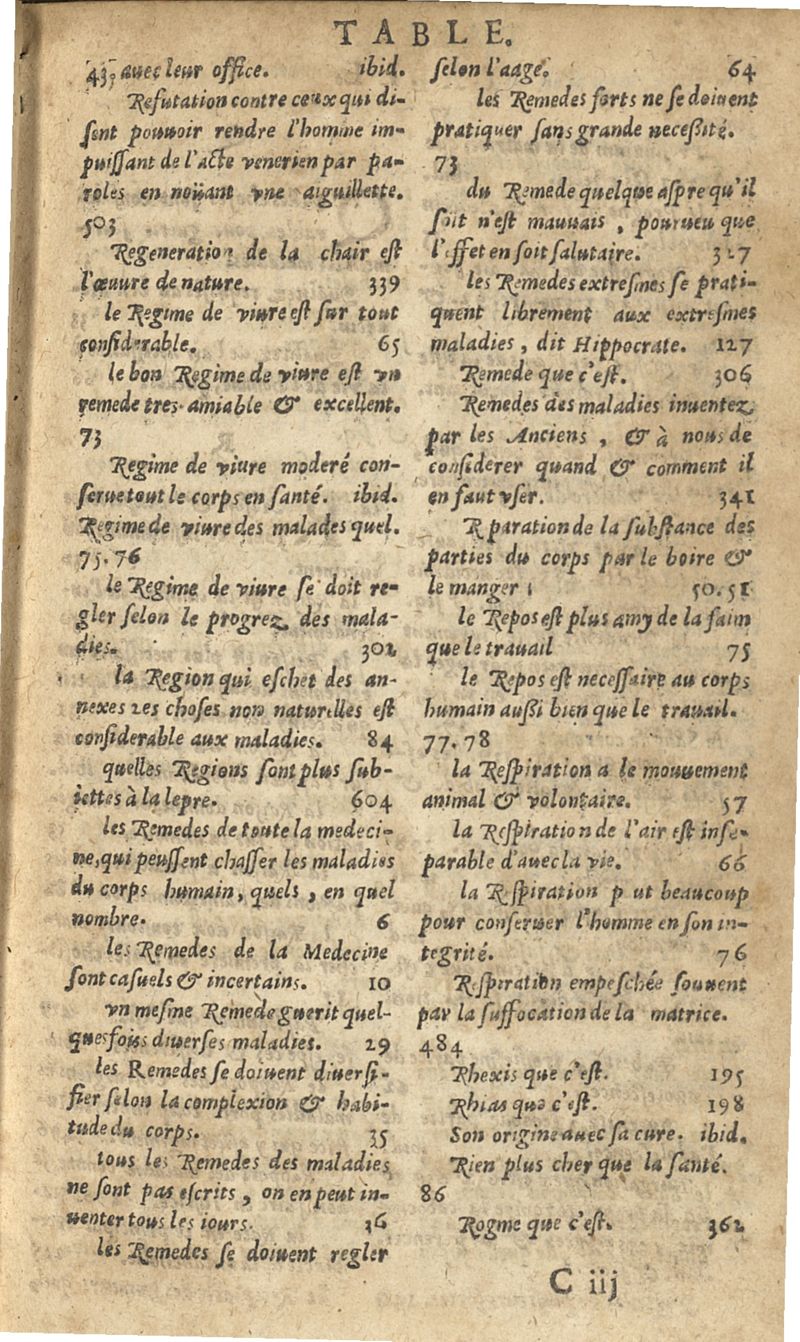 TABLE.
43, auec leur office. ibid.
Refutation contre ceux qui di-
sent pouuoir rendre l'homme im-
puissant de l'acte venerien par pa-
roles en noüant vne aiguillette.
503
Regeneration de la chair est
l'œuure de nature. 339
le Regime de viure est sur tout
considerable. 65
le bon Regime de viure est vn
remede tres-amiable & excellent.
73
Regime de viure moderé con-
serue tout le corps en santé. ibid.
Regime de viure des malades quel.
75. 76
le Regime de viure se doit re-
gler selon le progrez des mala-
dies. 302
la Region qui eschet des an-
nexes des choses non naturelles est
considerable aux maladies. 84
quelles Regions sont plus sub-
iettes à la lepre. 604
les Remedes de toute la medeci-
ne, qui peussent chasser les maladies
du corps humain, quels, en quel
nombre. 6
les Remedes de la Medecine
sont casuels & incertains. 10
vn mesme Remede guerit quel-
quesfois diuerses maladies. 29
les Remedes se doiuent diuersi-
fier selon la complexion & habi-
tude du corps. 35
tous les Remedes des maladies
ne sont pas escrits, on en peut in-
uenter tous les iours. 36
les Remedes se doiuent regler
selon l'aage. 64
les Remedes forts ne se doiuent
pratiquer sans grande necessité.
73
du Remede quelque aspre qu'il
soit n'est mauuais, pourueu que
l'effet en soit salutaire. 327
les Remedes extresmes se prati-
quent librement aux extresmes
maladies, dit Hippocrate. 127
Remede que c'est. 306
Remedes des maladies inuentez
par les Anciens, & à nous de
considerer quand & comment il
en faut vser. 341
R paration de la substance des
parties du corps par le boire &
le manger 50. 51
le Repos est plus amy de la faim
que le trauail 75
le Repos est necessaire au corps
humain aussi bien que le trauail.
77. 78
la Respiration a le mouuement
animal & volontaire. 57
la Respiration de l'air est inse-
parable d'auec la vie. 66
la Respiration p ut beaucoup
pour conseruer l'homme en son in-
tegrité. 76
Respiration empeschée souuent
par la suffocation de la matrice.
484
Rhexis que c'est. 195
Rhias que c'est. 198
Son origine auec sa cure. ibid.
Rien plus cher que la santé.
86
Rogme que c'est. 362
C iij